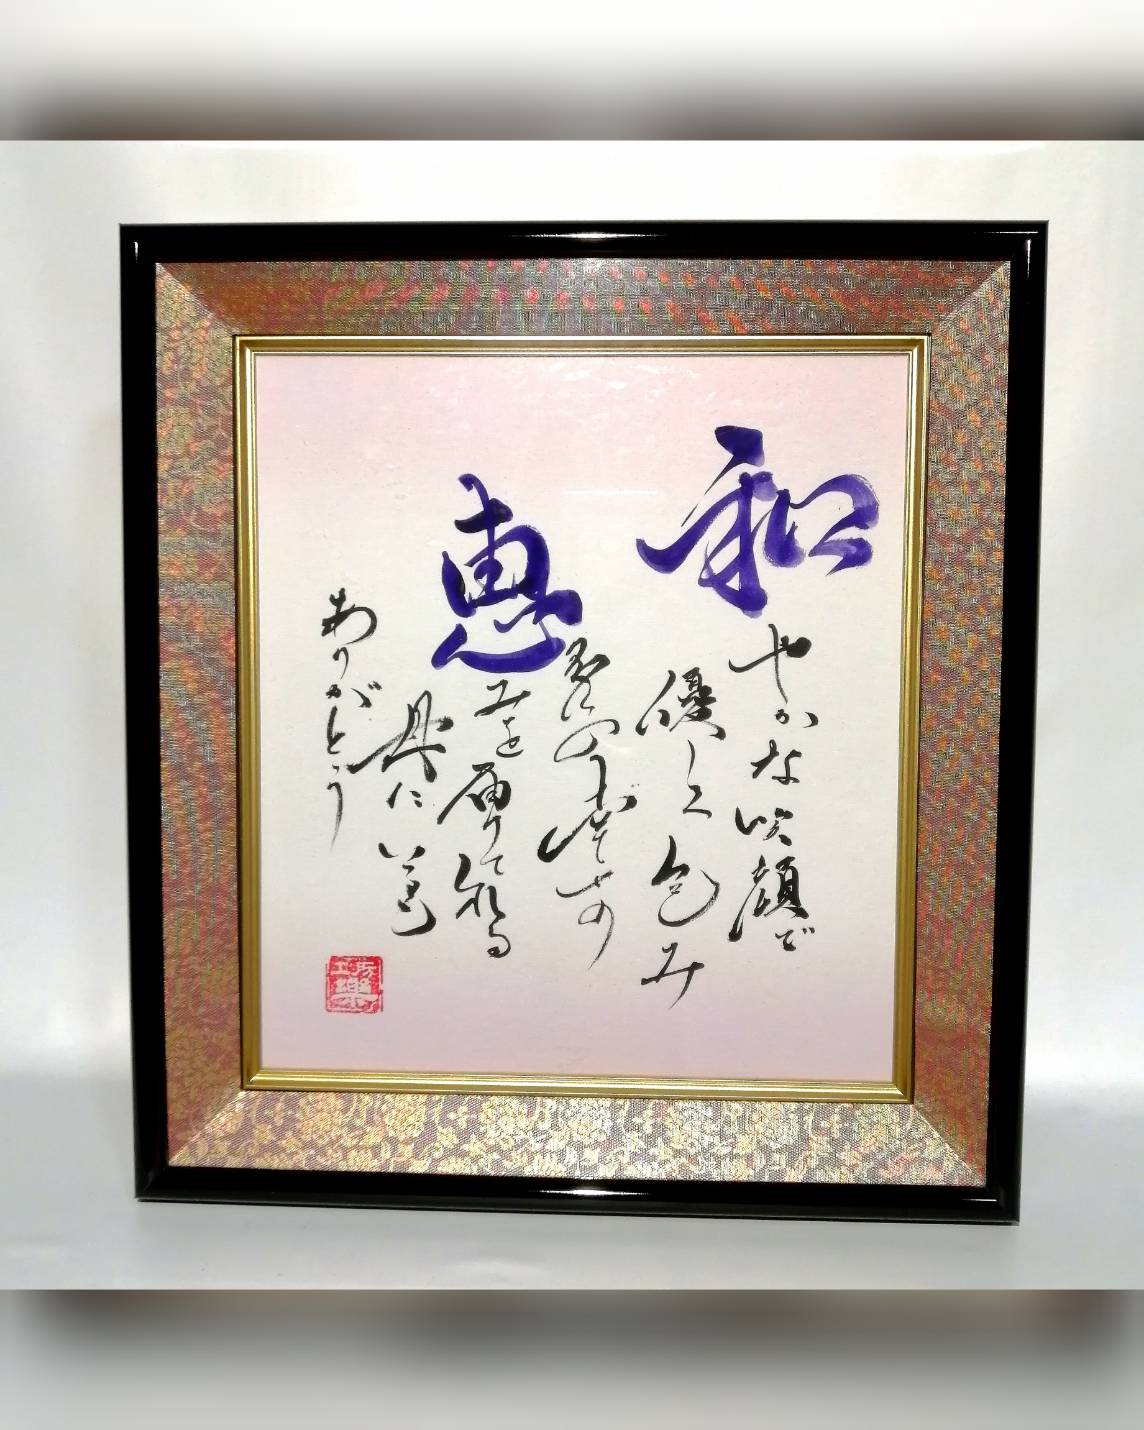 和やかな笑顔で
優しく包み
幸せの
恵みを届けてくれる
母にいつも
ありがとう